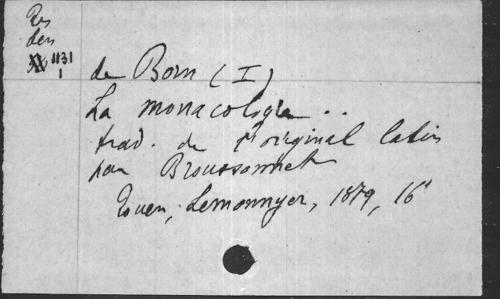 Res
den
XX 1131
1
de Born (I)
La monacologie ..
trad. de l'original latin
par Broussonnet
Rouen, Lemonnyer, 1879, 16°